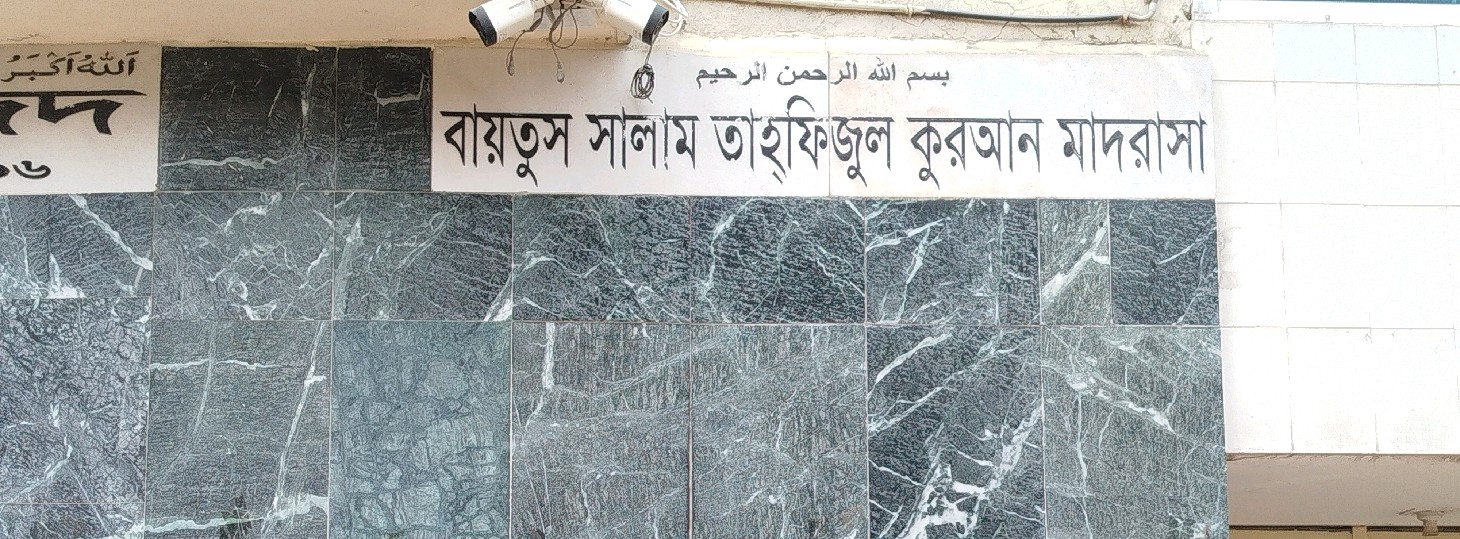 اَللّٰهُ اَكْبَرُ
بسم الله الرحمن الرحيم
বায়তুস সালাম তাহ্ফিজুল কুরআন মাদরাসা